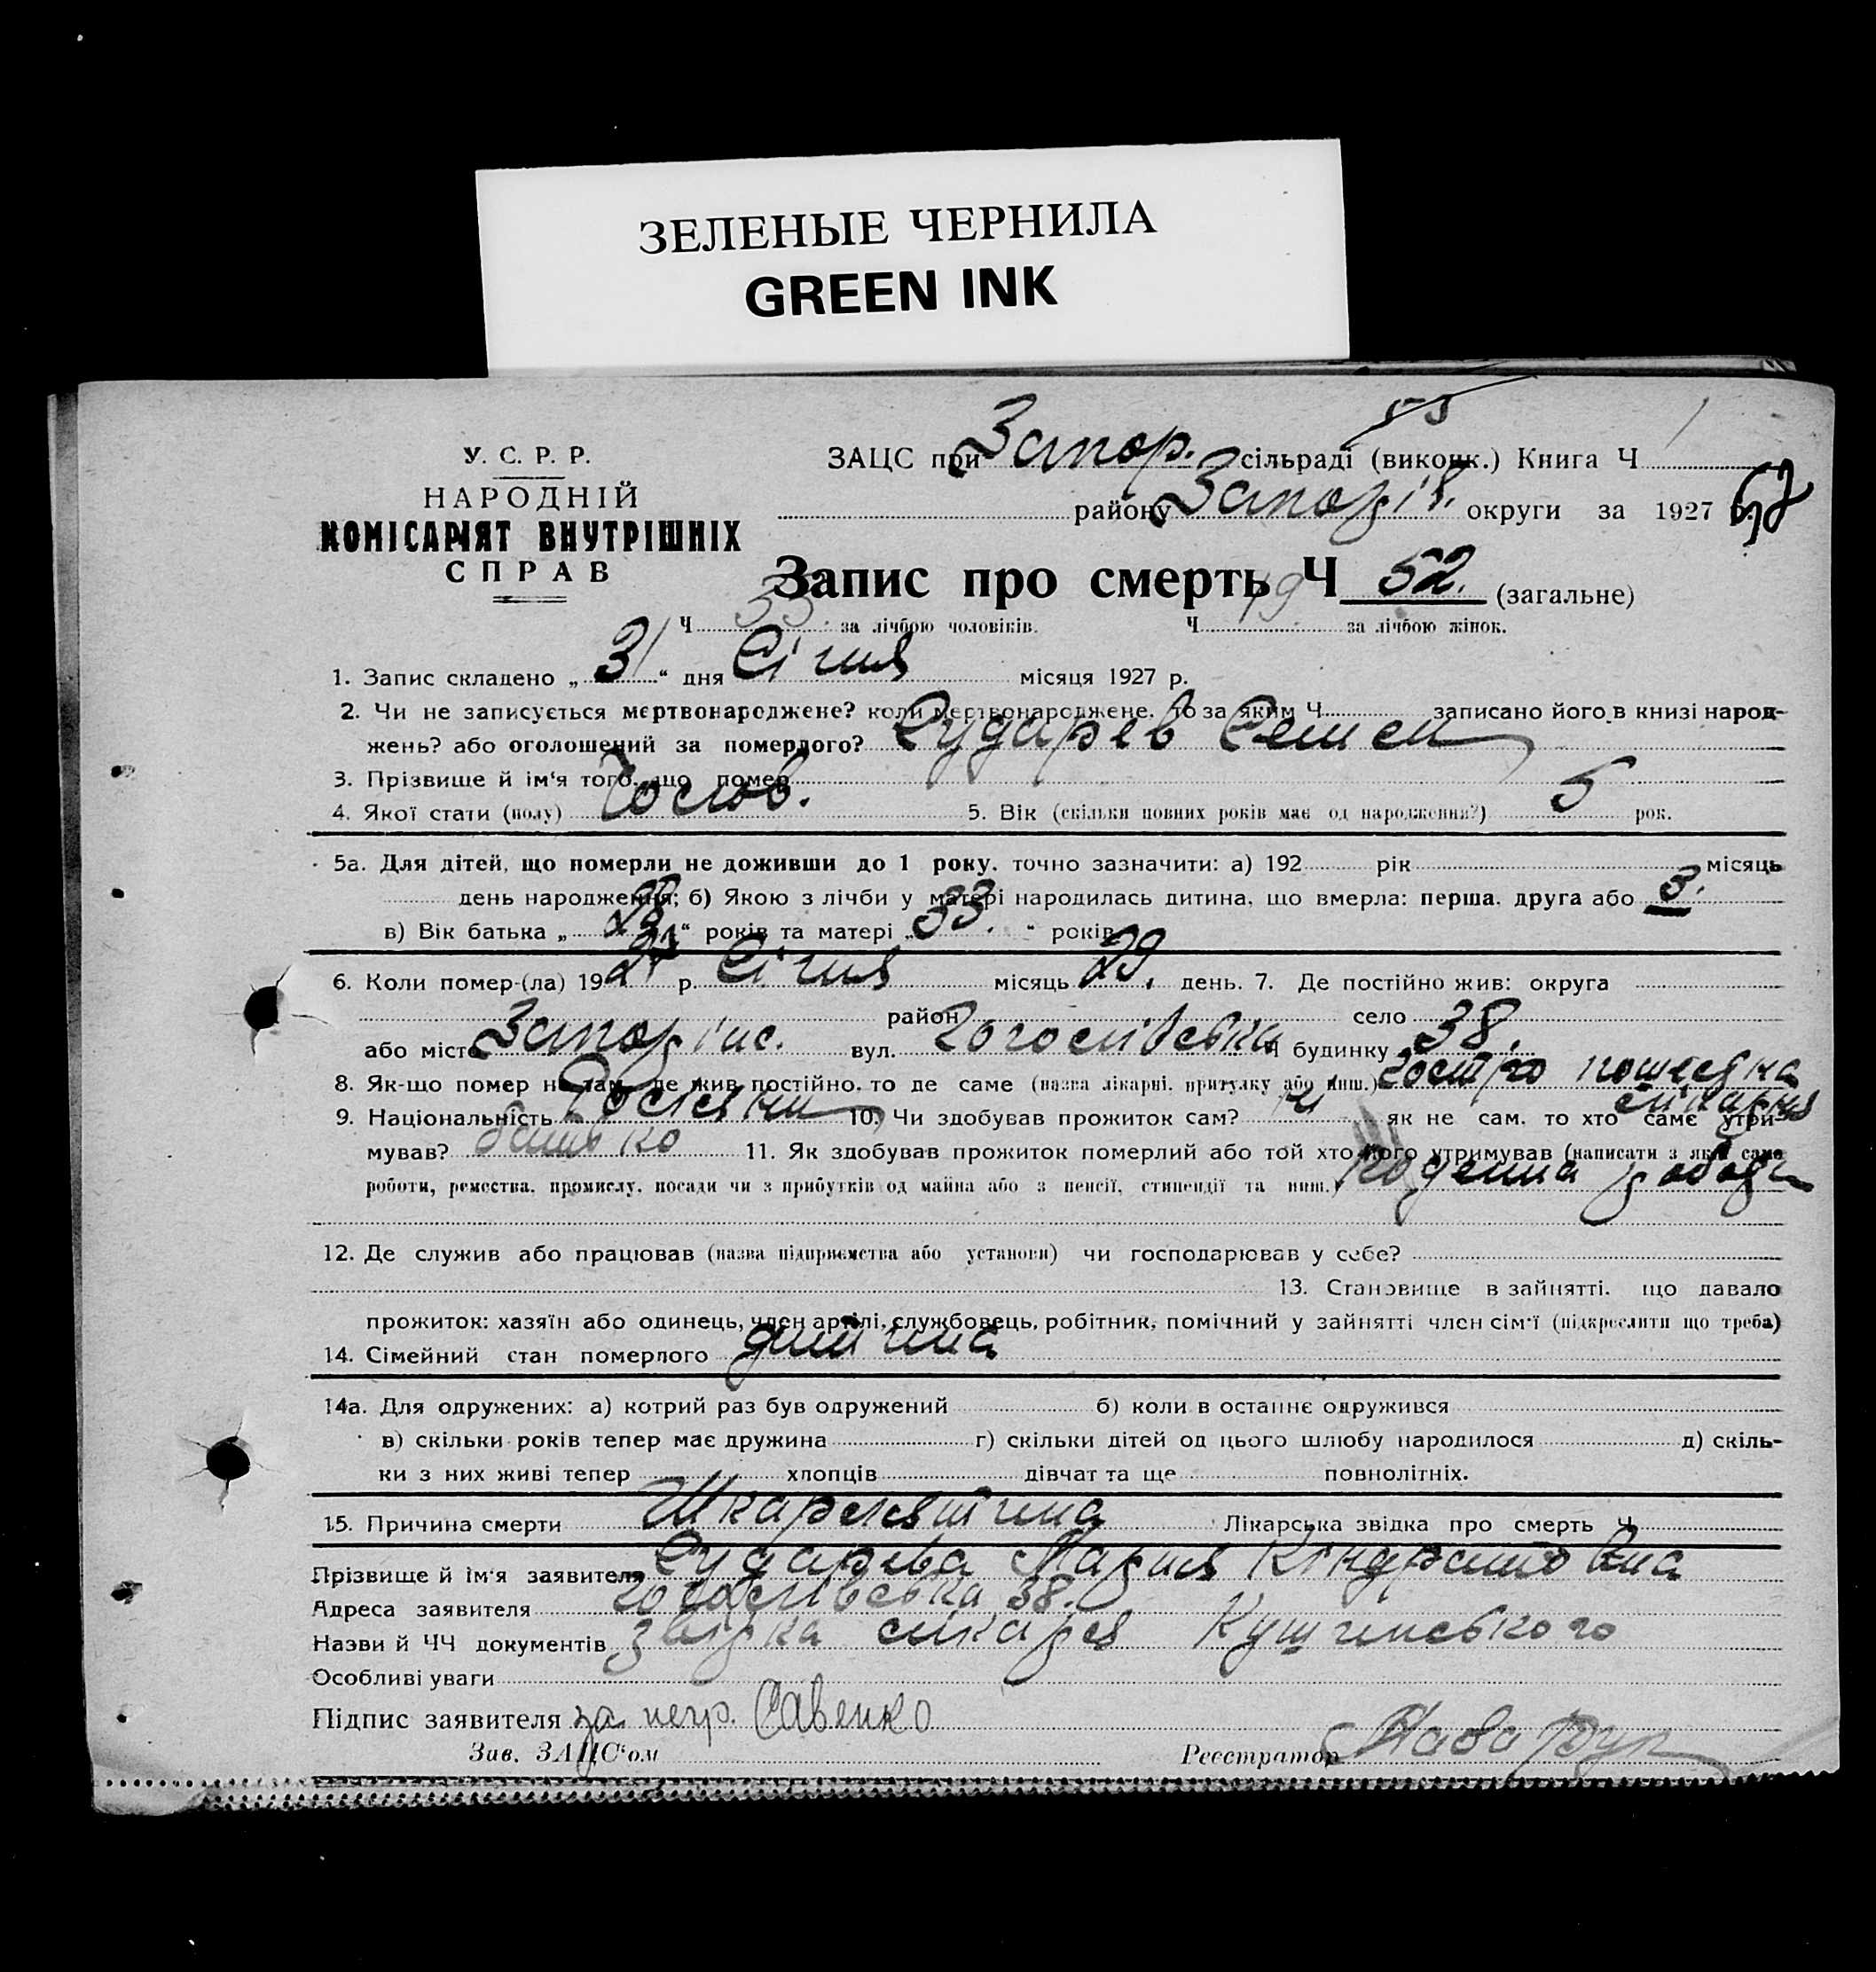 ЗЕЛЕНЫЕ ЧЕРНИЛА
GREEN INK
У. С. Р. Р.
НАРОДНІЙ
КОМІСАРІЯТ ВНУТРІШНІХ
СПРАВ
55
ЗАЦС при Запор. сільраді (виконк.) Книга Ч 1
району Запоріз. округи за 1927
Запис про смерть Ч 52. (загальне)
Ч 33 за лічбою чоловіків. Ч 19 за лічбою жінок.
1. Запис складено „ 31 “ дня Січня місяця 1927 р.
2. Чи не записується мертвонароджене? коли мертвонароджене, то за яким Ч записано його в книзі народ-
жень? або оголошений за померлого? Сударев Семен
3. Прізвище й ім‘я того, що помер
4. Якої стати (полу) Чолов. 5. Вік (скільки повних років має од народження?) 5 рок.
5а. Для дітей, що померли не доживши до 1 року, точно зазначити: а) 192 рік місяць
день народження; б) Якою з лічби у матері народилась дитина, що вмерла: перша, друга або 3.
в) Вік батька „ “ років та матері „ 33. “ років
6. Коли помер-(ла) 1927 р. Січня місяць 29. день. 7. Де постійно жив: округа
район село
або місто Запоріж. вул. Гоголівська Ч будинку 38.
8. Як-що помер не там, де жив постійно, то де саме (назва лікарні, притулку або инш.) Гостро пошесна
лікарня
9. Національність Росіянин 10. Чи здобував прожиток сам? ні як не сам, то хто саме утри-
мував? батько 11. Як здобував прожиток померлий або той хто його утримував (написати з якої саме
роботи, ремества, промислу, посади чи з прибутків од майна або з пенсії, стипендії та инш.)
12. Де служив або працював (назва підприємства або установи) чи господарював у себе?
13. Становище в зайнятті, що давало
прожиток: хазяїн або одинець, член артілі, службовець, робітник, помічний у зайнятті член сім‘ї (підкреслити що треба)
14. Сімейний стан померлого дитина
14а. Для одружених: а) котрий раз був одружений б) коли в останнє одружився
в) скільки років тепер має дружина г) скільки дітей од цього шлюбу народилося д) скіль-
ки з них живі тепер хлопців дівчат та ще повнолітніх.
15. Причина смерти Шкарлятина Лікарська звідка про смерть Ч
Прізвище й ім‘я заявителя Сударева Марія Кіндратовна
Адреса заявителя Гоголівська 38.
Назви й ЧЧ документів звідка лікаря
Особливі уваги
Підпис заявителя за негр. Савенко
Зав. ЗАЦС‘ом Реєстратор